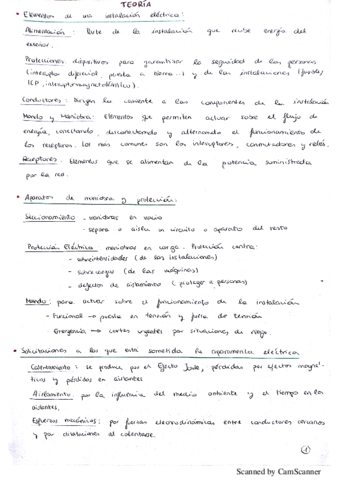 TEORÍA
• Elementos de una instalación eléctrica:
Alimentación: Parte de la instalación que recibe energía del
exterior.
Protecciones: dispositivos para garantizar la seguridad de las personas
(interruptor diferencial, puesta a tierra...) y de las instalaciones (fusible,
ICP, interruptor magnetotérmico).
Conductores: Dirigen la corriente a las componentes de la instalación
Mando y Maniobra: Elementos que permiten actuar sobre el flujo de
energía, conectando, desconectando y alternando el funcionamiento de
los receptores. Los más comunes son los interruptores, conmutadores y relés.
Receptores: Elementos que se alimentan de la potencia suministrada
por la red.
• Aparatos de maniobra y protección:
Seccionamiento: - maniobras en vacío
- separa o aísla un circuito o aparato del resto
Protección Eléctrica: maniobras en carga. Protección contra:
- sobreintensidades (de las instalaciones)
- sobrecargas (de las máquinas)
- defectos de aislamiento (proteger a personas)
Mando: para actuar sobre el funcionamiento de la instalación
- Funcional → puesta en tensión y fuera de tensión
- Emergencia → cortes urgentes por situaciones de riesgo.
• Solicitaciones a las que está sometida la aparamenta eléctrica
Calentamiento: se produce por el Efecto Joule, pérdidas por efectos magné-
ticos y pérdidas en aislantes
Aislamiento: por la influencia del medio ambiente y el tiempo en los
aislantes.
Esfuerzos mecánicos: por fuerzas electrodinámicas entre conductores cercanos
y por dilataciones al calentarse.
1
Scanned by CamScanner